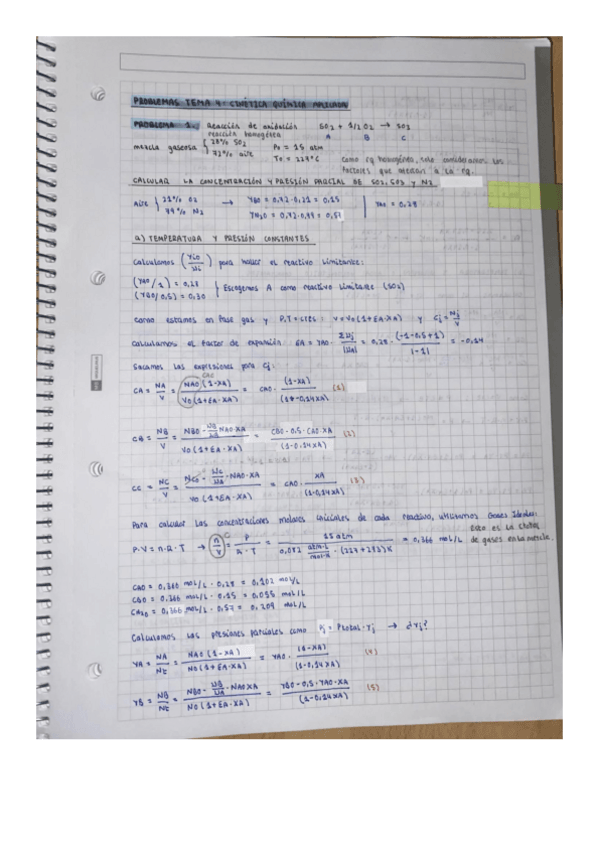 PROBLEMAS TEMA 4: CINÉTICA QUÍMICA APLICADA
PROBLEMA 1. Reacción de oxidación SO2 + 1/2 O2 → SO3
reacción homogénea A B C
mezcla gaseosa { 28% SO2 P0 = 15 atm
72% aire T0 = 227ºC
como rq homogénea, solo consideramos los
factores que afectan a la rq.
CALCULAR LA CONCENTRACIÓN Y PRESIÓN PARCIAL DE SO2, SO3 y N2
Aire { 21% O2 → YBO = 0,72·0,21 = 0,15 | YAO = 0,28
79% N2 YN20 = 0,72·0,79 = 0,57
a) TEMPERATURA Y PRESIÓN CONSTANTES
Calculamos (Yi0/νi) para hallar el reactivo limitante:
(YAO/1) = 0,28
(YBO/0,5) = 0,30 } Escogemos A como reactivo limitante (SO2)
Como estamos en fase gas y P,T = ctes: V = V0(1+EA·XA) y Cj = Nj/V
Calculamos el factor de expansión. EA = YAO · Σνj/|νA| = 0,28 · (-1-0,5+1)/|-1| = -0,14
Sacamos las expresiones para Cj:
CAO
CA = NA/V = NAO(1-XA)/V0(1+EA·XA) = CAO · (1-XA)/(1-0,14XA) (1)
CB = NB/V = NBO - νB/νA·NAO·XA / V0(1+EA·XA) = CBO-0,5·CAO·XA/(1-0,14XA) (2)
CC = NC/V = NC0 - νC/νA·NAO·XA / V0(1+EA·XA) = CAO · XA/(1-0,14XA) (3)
Para calcular las concentraciones molares iniciales de cada reactivo, utilizamos Gases Ideales:
P·V = n·R·T → (n/V) = P/R·T = 15 atm / 0,082 atm·L/mol·K · (227+273)K = 0,366 mol/L
Esto es la Ctotal
de gases en la mezcla.
CAO = 0,366 mol/L · 0,28 = 0,102 mol/L
CBO = 0,366 mol/L · 0,15 = 0,055 mol/L
CN20 = 0,366 mol/L · 0,57 = 0,209 mol/L
Calculamos las presiones parciales como Pj = Ptotal·Yj → ¿Yj?
YA = NA/Nt = NAO(1-XA)/N0(1+EA·XA) = YAO · (1-XA)/(1-0,14XA) (4)
YB = NB/Nt = NBO - νB/νA·NAOXA / N0(1+EA·XA) = YBO-0,5·YAO·XA/(1-0,14XA) (5)